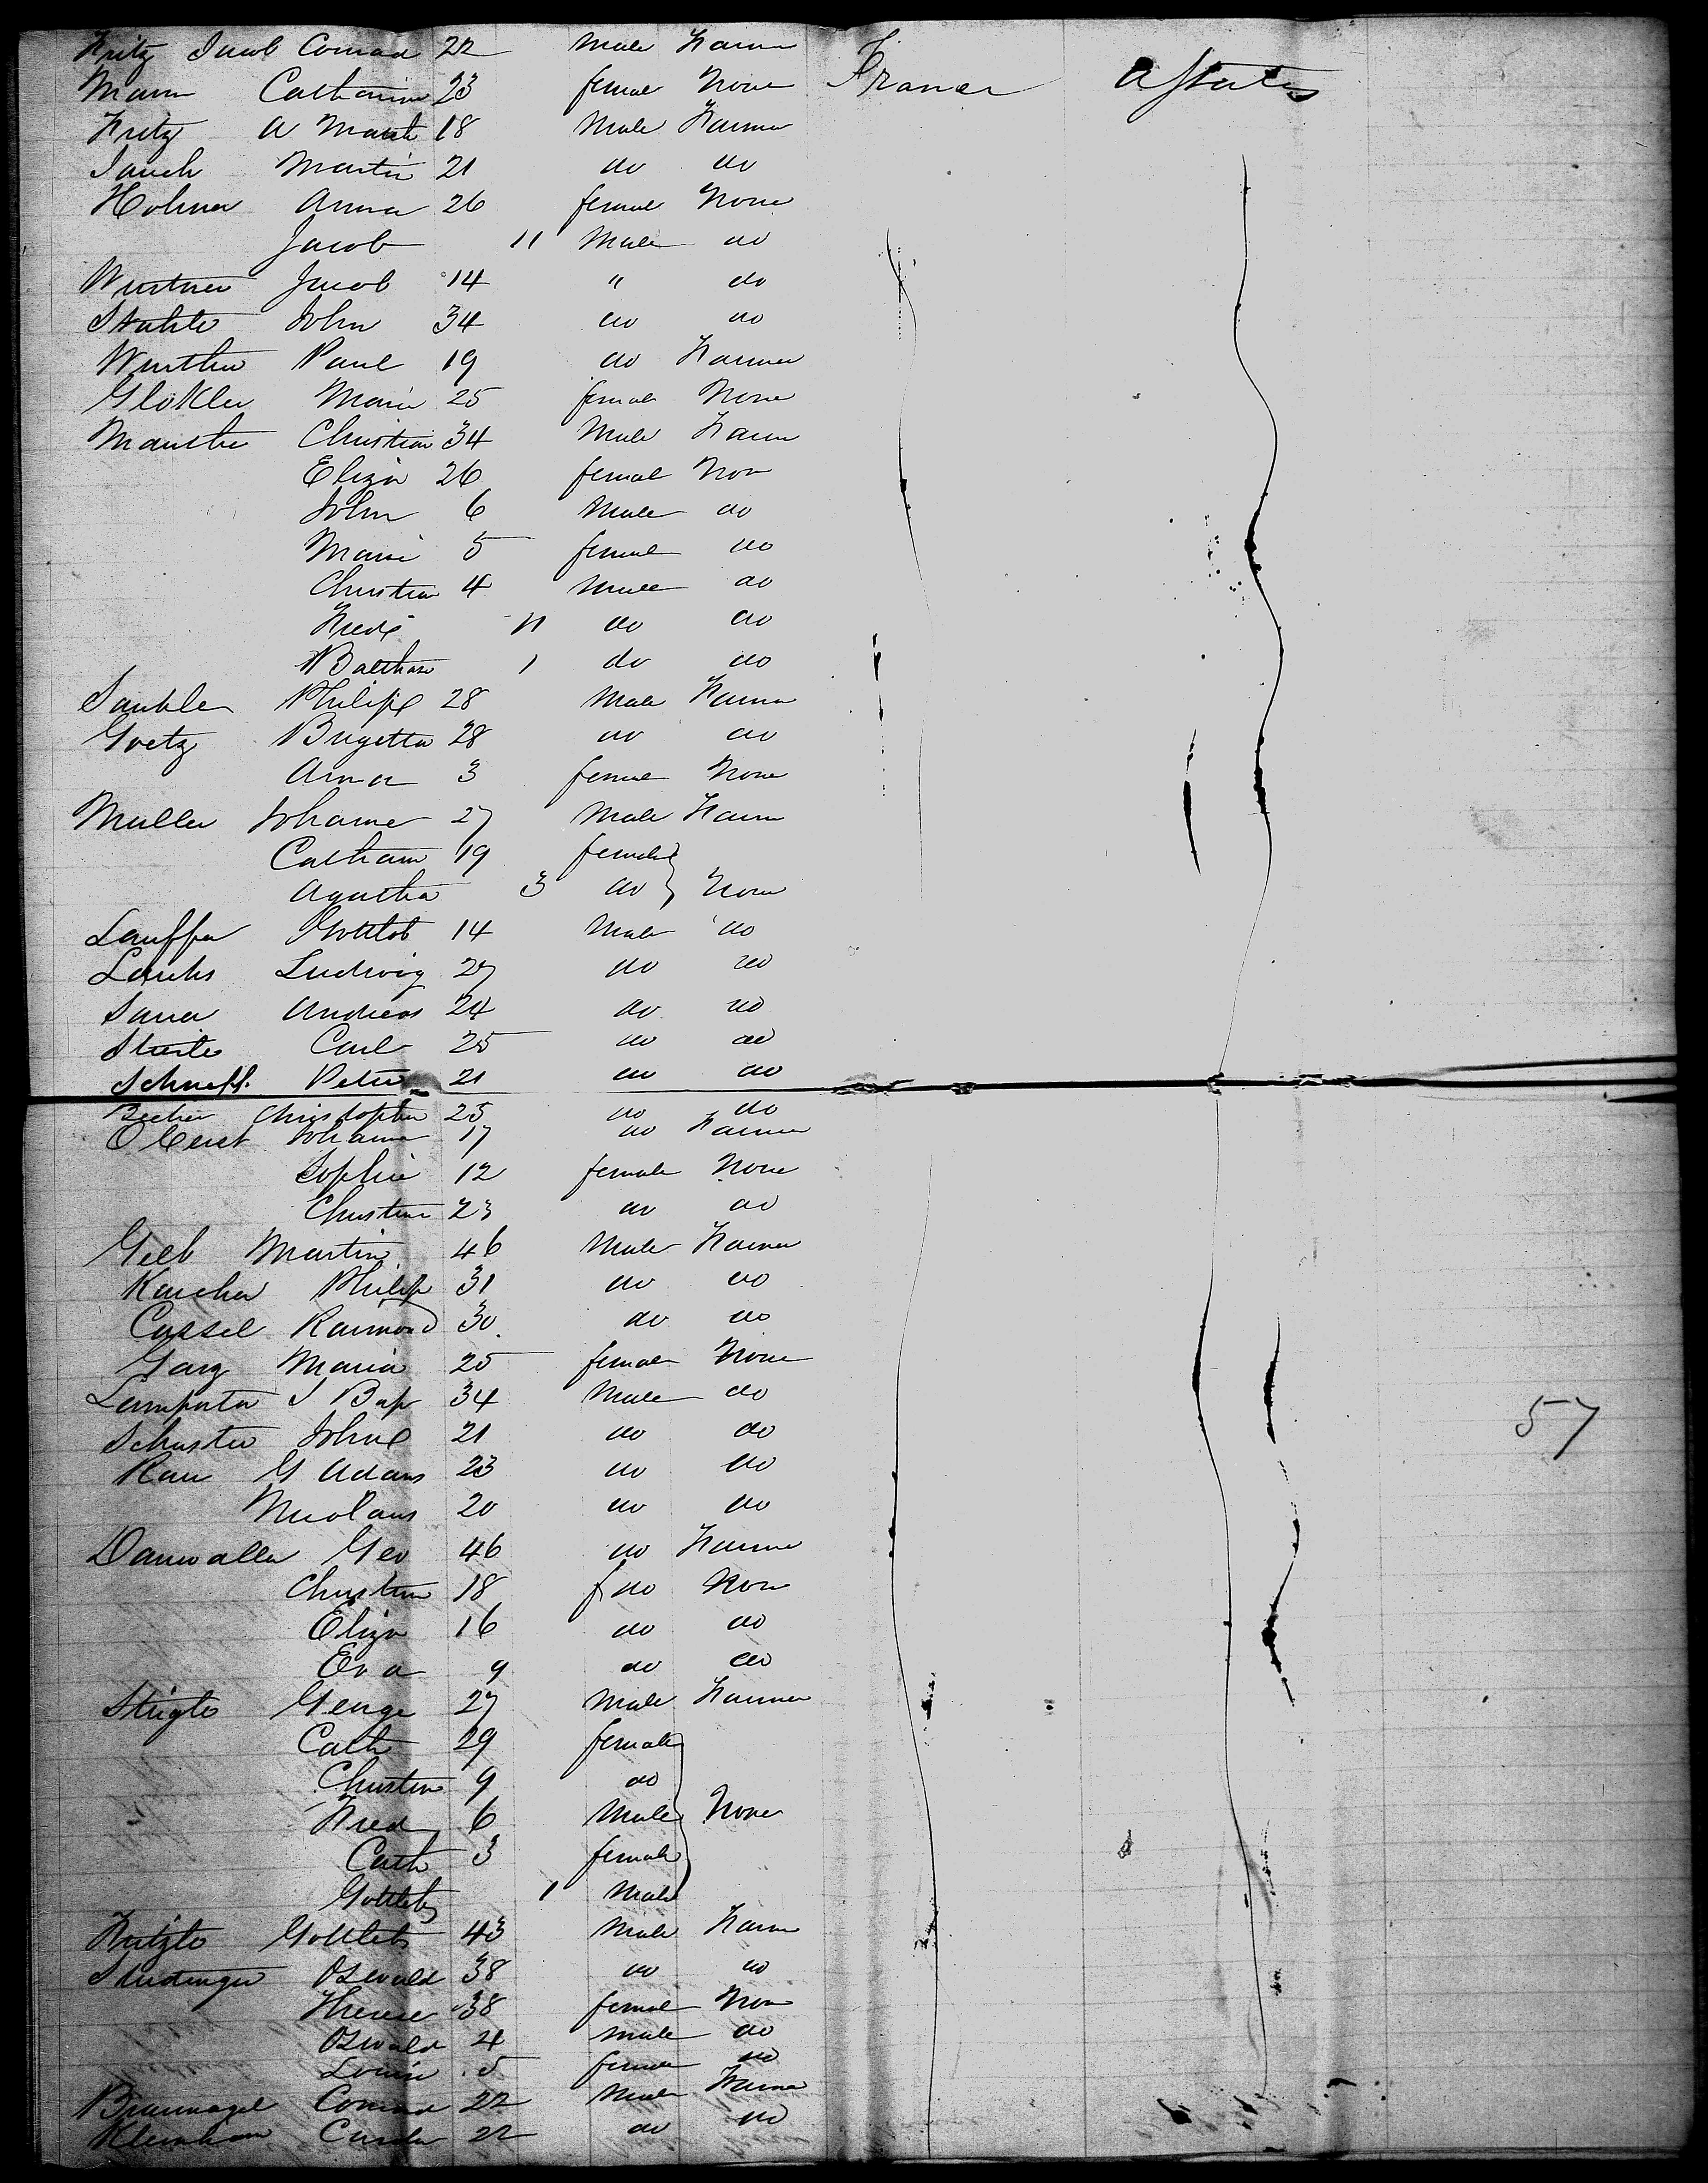 Fritz Jacob Conrad 22 Male Farmer France U States
Mann Catharina 23 female None
Fritz A Maria 18 Male Farmer
Jauch Martin 21 do do
Hohner Anna 26 female None
Jacob 11 Male do
Wurtner Jacob 14 " do
Stahle John 34 do do
Wurthner Paul 19 do Farmer
Glokler Maria 25 female None
Christian 34 Male Farm
Eliza 26 female Non
John 6 Male do
Marie 5 female do
Christian 4 Male do
Fredk 11 do do
Balthas 1 do do
Philipp 28 Male Farmer
Goetz Brigetta 28 do do
Anna 3 female None
Muller Johanne 27 Male Farm
Catharin 19 female
Agatha 3 do None
Lauffer Gottlob 14 Male do
Ludwig 27 do do
Sauer Andreas 24 do do
Carl 25 do do
Schnepf Peter 21 do do
Becker Christopher 25 do do
Johanne 17 do Farmer
Sophie 12 female None
Christine 23 do do
Gelb Martin 46 Male Farmer
Karcher Philipp 31 do do
Cassel Raimond 30 do do
Maria 25 female None
J Bap 34 Male do
Schuster John 21 do do 57
Rau G Adam 23 do do
Nicolaus 20 do do
Danwaller Geo 46 do Farmer
Christine 18 f do Non
Eliza 16 do do
Eva 9 do do
George 27 Male Farmer
Cath 29 female
Christine 9 do
Fred 6 Male None
Cath 3 female
Gottlieb 1 Male
Gottlieb 43 Male Farm
Studinger Oswald 38 do do
Therese 38 female Non
Oswald 4 male do
Louise 5 female do
Braunagel Conrad 22 Male Farmer
22 do do